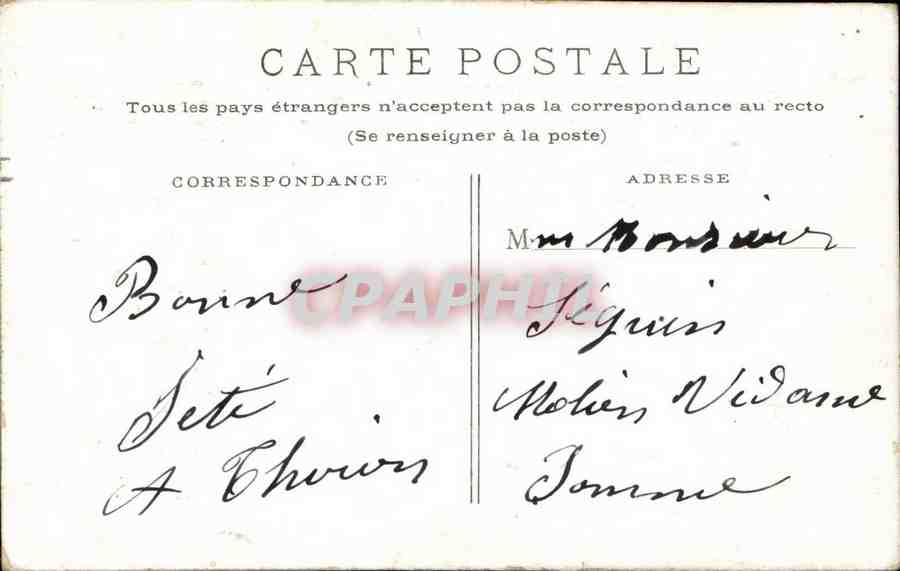 CARTE POSTALE
Tous les pays étrangers n'acceptent pas la correspondance au recto
(Se renseigner à la poste)
CORRESPONDANCE
Bonne
Feté
A Thoirin
ADRESSE
M Monsieur
Séguin
Molien Vidame
Somme
CPAPHIL